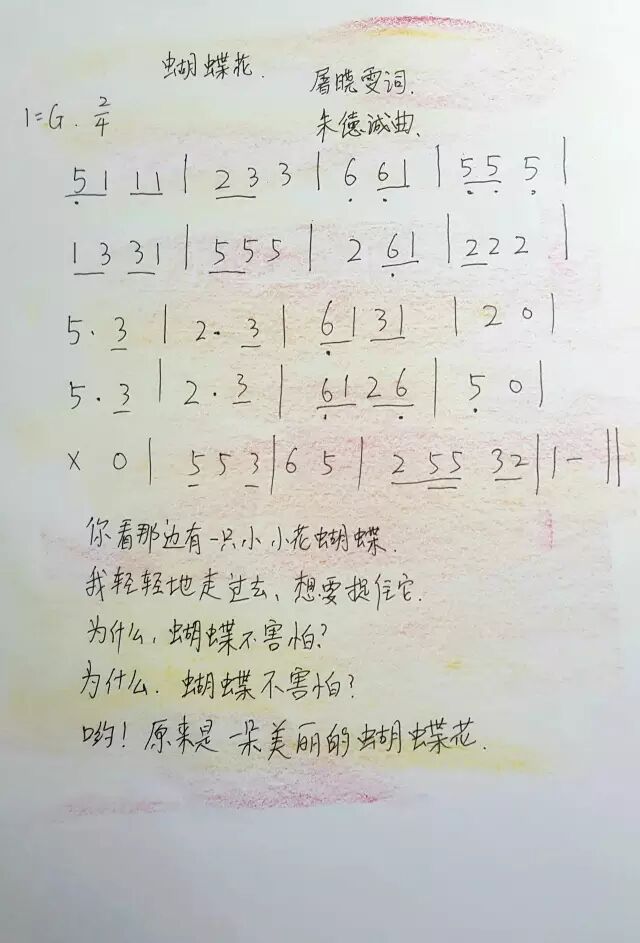 蝴蝶花.
屠晓雯词.
1=G. 2/4
朱德诚曲.
5̣1 11 | 23 3 | 6̣ 6̣1 | 5̣5̣ 5̣ |
13 31 | 55 5 | 2 6̣1 | 22 2 |
5· 3 | 2· 3 | 6̣1 31 | 2 0 |
5· 3 | 2· 3 | 6̣1 26̣ | 5̣ 0 |
x 0 | 5 5 3 | 6 5 | 2 55 32 | 1 - ||
你看那边有一只小小花蝴蝶.
我轻轻地走过去、想要捉住它.
为什么,蝴蝶不害怕?
为什么.蝴蝶不害怕?
哟!原来是一朵美丽的蝴蝶花.